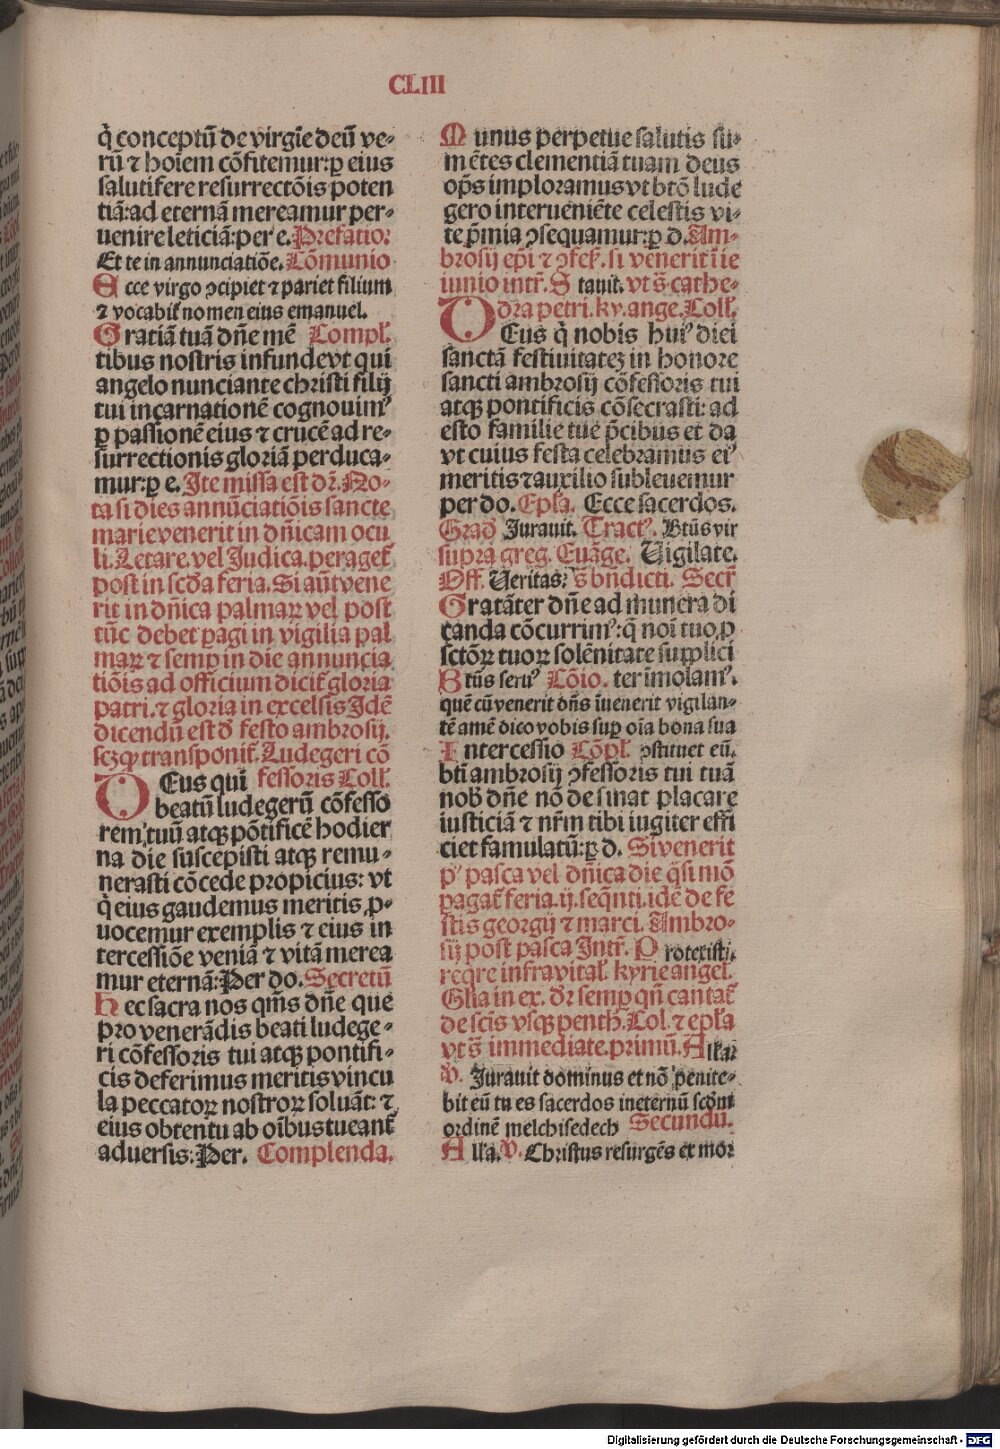 CLIII
q̇ conceptū de virgīe deū ve-
rū ⁊ hoīem cōfitemur: ꝑ eius
salutifere resurrectōis poten
tiā: ad eternā mereamur per-
uenire leticiā: per e. Prefatio:
Et te in annunciatiōe. Cōmunio
Ecce virgo ꝯcipiet ⁊ pariet filium
⁊ vocabit̄ nomen eius emanuel.
Gratiā tuā dn̄e mē Compl'.
tibus nostris infunde vt qui
angelo nunciante christi filij
tui incarnationē cognouimꝰ
ꝑ passionē eius ⁊ crucē ad re-
surrectionis gloriā perduca-
mur: ꝑ e. Ite missa est dr̄. No-
ta si dies annūciatiōis sancte
marie venerit in dn̄icam ocu
li. Letare. vel Judica. peraget̄
post in scd̄a feria. Si aūt vene
rit in dn̄ica palmaꝝ vel post
tūc debet ꝑagi in vigilia pal
maꝝ ⁊ semꝑ in die annuncia
tiōis ad officium dicit̄ gloria
patri. ⁊ gloria in excelsis Idē
dicendū est d̄ festo ambrosij.
scꝫqꝫ transponit̄. Ludegeri cō
fessoris Coll'.
DEus qui
beatū ludegerū cōfesso
rem tuū atqꝫ pōtificē hodier
na die suscepisti atqꝫ remu-
nerasti cōcede propicius: vt
q̇ eius gaudemus meritis ꝓ-
uocemur exemplis ⁊ eius in
tercessiōe veniā ⁊ vitā merea
mur eternā: Per do. Secretū
Hec sacra nos qm̄s dn̄e que
pro venerādis beati ludege-
ri cōfessoris tui atqꝫ pontifi-
cis deferimus meritis vincu
la peccatoꝝ nostroꝝ soluāt: ⁊
eius obtentu ab oībus tueant̄
aduersis: Per. Complenda.
Munus perpetue salutis su-
mētes clementiā tuam deus
op̄s imploramus vt btō lude
gero interueniēte celestis vi-
te p̄mia ꝯsequamur: ꝑ d. Am-
brosij ep̄i ⁊ ꝯfess̄. si venerit ī ie
iunio intr̄. Stauit. vt s̄ cathe-
dra petri. ky. ange. Coll'.
DEus q̇ nobis huiꝰ diei
sanctā festiuitateꝫ in honore
sancti ambrosij cōfessoris tui
atqꝫ pontificis cōsecrasti: ad
esto familie tue p̄cibus et da
vt cuius festa celebramus eiꝰ
meritis ⁊ auxilio subleuemur
per do. Epl̄a. Ecce sacerdos.
Grad̄ Jurauit. Tractꝰ. Btūs vir
supra greg. Euāge. Vigilate.
Off. Veritas: s̄ bn̄dicti. Secr̄
Gratāter dn̄e ad munera di
canda cōcurrimꝰ: q̄ noī tuo ꝓ
sctōꝝ tuoꝝ solēnitate supplici
Btūs seruꝰ Cōio. ter imolamꝰ.
quē cū venerit dn̄s īuenerit vigilan-
tē amē dico vobis suꝑ oīa bona sua
Intercessio Cōpl'. ꝯstituet eū.
bt̄i ambrosij ꝯfessoris tui tuā
nob̄ dn̄e nō desinat placare
iusticiā ⁊ nr̄m tibi iugiter effi
ciet famulatū: ꝑ d. Si venerit
pꝰ pasca vel dn̄ica die q̄si mō
pagat̄ feria .ij. seq̄nti. idē de fe
stis georgij ⁊ marci. Ambro-
sij post pasca Intr̄. Protexisti.
reqre infra vital'. kyrie angel.
Gl̄ia in ex. dr̄ semꝑ qn̄ cantat̄
de sctīs vsqꝫ penth̄. Col. ⁊ epl̄a
vt s̄ immediate. primū. Alla.
V. Jurauit dominus et nō penite-
bit eū tu es sacerdos in eternū scdm
ordinē melchisedech Secundū.
Alla. V. Christus resurgēs ex mor
Digitalisierung gefördert durch die Deutsche Forschungsgemeinschaft - DFG